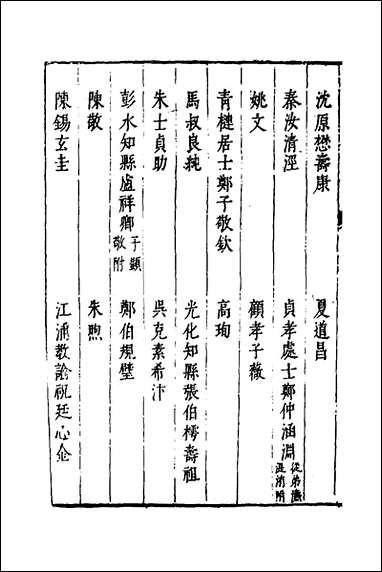 沈原懋壽康　夏道昌
秦汝清涇　貞孝處士鄭仲涵淵從弟濂湜洧附
姚文　顧孝子薇
青槤居士鄭子敬欽　高珣
馬叔良純　光化知縣張伯樗壽祖
朱士貞助　吳克素希汴
彭水知縣盧祥卿子顯敬附　鄭伯規璧
陳敬　朱煦
陳錫玄圭　江浦教諭祝廷心金